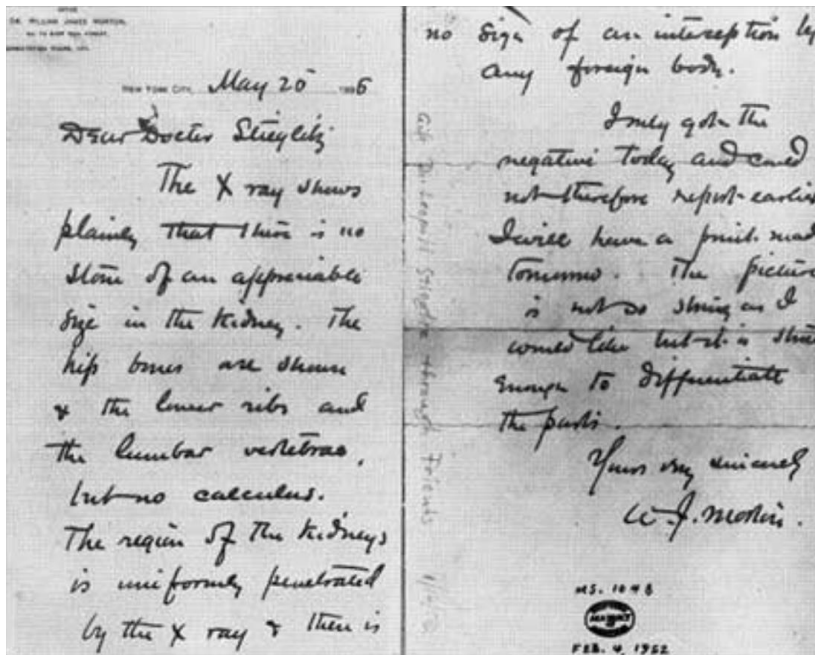 OFFICE
DR. WILLIAM JAMES MORTON,
NEW YORK CITY, May 20 1896
Dear Docter Stieglitz
The X ray shows
plainly that there is no
stone of an appreciable
size in the kidney. The
hip bones are shown
& the lower ribs and
the lumbar vertebrae,
but no calculus.
The region of the kidneys
is uniformly penetrated
by the X ray & there is
no sign of an interception by
any foreign body.
I only got the
negative today and could
not therefore report earlier
I will have a print made
tomorrow. The picture
is not so strong as I
would like but it is
enough to differentiate
the parts.
Yours very sincerely
W. J. Morton.
Gift Dr. Leopold Stieglitz through Friends
MS. 1048
FEB. 4, 1952